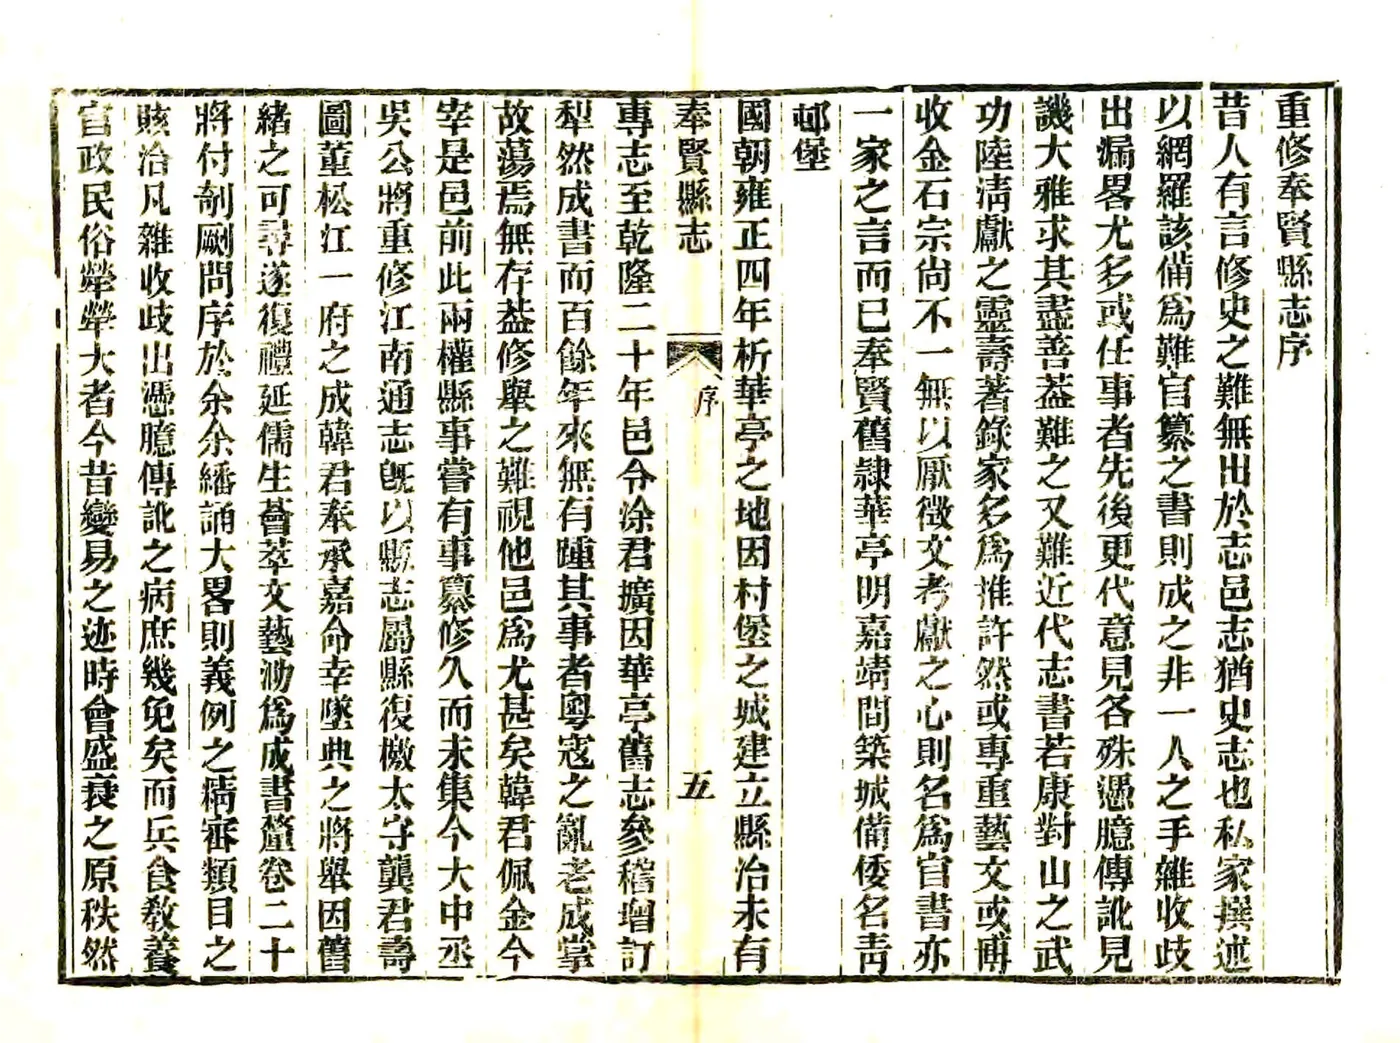 重修奉賢縣志序
昔人有言修史之難無出於志邑志猶史志也私家撰述
以網羅該備爲難官纂之書則成之非一人之手雜收歧
出漏畧尤多或任事者先後更代意見各殊憑臆傳訛見
譏大雅求其盡善葢難之又難近代志書若康對山之武
功陸淸獻之靈壽著錄家多爲准許然或專重藝文或博
收金石宗尙不一無以厭徵文考獻之心則名爲官書亦
一家之言而已奉賢舊隷華亭明嘉靖間築城備倭名靑
邨堡
國朝雍正四年析華亭之地因村堡之城建立縣治未有
奉賢縣志
序
五
專志至乾隆二十年邑令涂君擴因華亭舊志參稽增訂
犁然成書而百餘年來無有踵其事者粵寇之亂老成掌
故蕩焉無存葢修舉之難視他邑爲尤甚矣韓君佩金今
宰是邑前此兩權縣事嘗有事纂修久而未集今大中丞
吳公將重修江南通志旣以縣志屬縣復檄太守龔君壽
圖董松江一府之成韓君奉承嘉命幸墜典之將舉因舊
緒之可尋遂復禮延儒生薈萃文藝泐爲成書釐卷二十
將付剞劂問序於余余繙誦大畧則義例之精審類目之
賅洽凡雜收歧出憑臆傳訛之病庶幾免矣而兵食敎養
官政民俗犖犖大者今昔變易之迹時會盛衰之原秩然